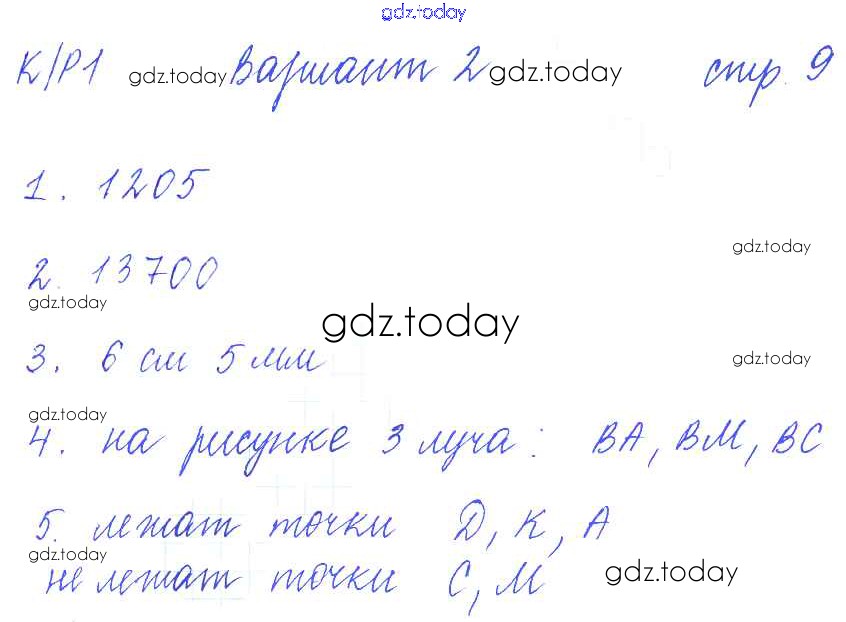 gdz.today
К/Р1 gdz.today Вариант 2 gdz.today стр. 9
1. 1205
gdz.today
2. 13700
gdz.today
gdz.today
3. 6 см 5 мм gdz.today
gdz.today
4. на рисунке 3 луча: ВА, ВМ, ВС
5. лежат точки D, К, А
gdz.today
не лежат точки С, М gdz.today